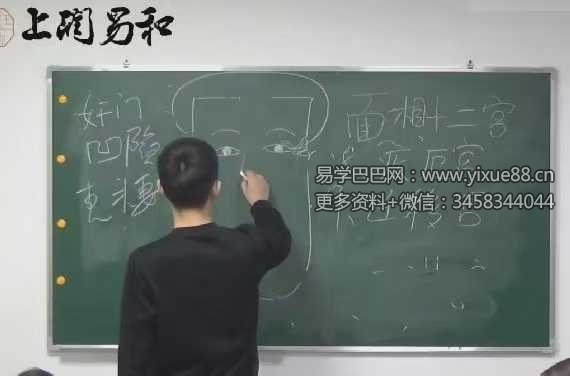 上润易和
奸门
凹陷
克妻
面相十二宫
厄宫
易学巴巴网：www.yixue88.cn
更多资料+微信：3458344044